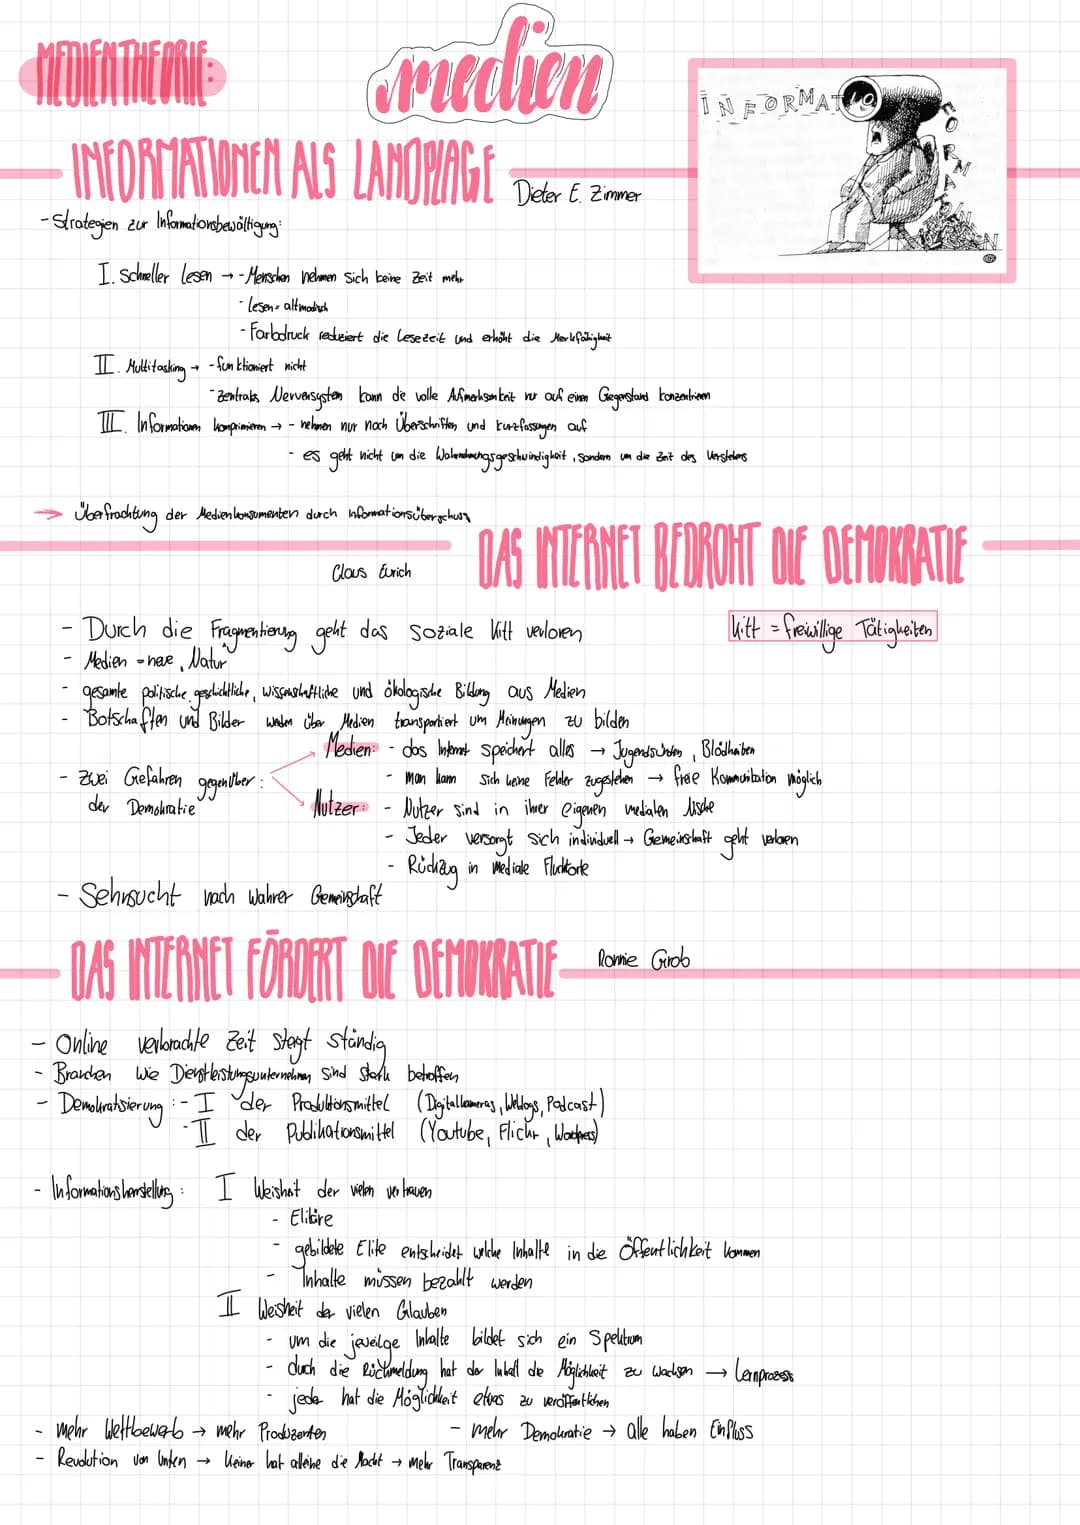 MEDIENTHEORIE:
medien
INFORMATIONEN ALS LANDPLAGE
Dieter E. Zimmer
INFORMATIO
- Strategien zur Informationsbewältigung:
I. Schneller Lesen → - Menschen nehmen sich keine Zeit mehr
- Lesen = altmodisch
- Farbdruck reduziert die Lesezeit und erhöht die Merkfähigkeit
II. Multitasking → - funktioniert nicht
- zentrales Nervensystem kann die volle Aufmerksamkeit nur auf einen Gegenstand konzentrieren
III. Informationen komprimieren → - nehmen nur noch Überschriften und Kurzfassungen auf
- es geht nicht um die Wahrnehmungsgeschwindigkeit, sondern um die Zeit des Verstehens
→ Überfrachtung der Medienkonsumenten durch Informationsüberschuss
DAS INTERNET BEDROHT DIE DEMOKRATIE
Claus Eurich
- Durch die Fragmentierung geht das soziale Kitt verloren
Kitt = freiwillige Tätigkeiten
- Medien = neue „Natur"
- gesamte politische, geschichtliche, wissenschaftliche und ökologische Bildung aus Medien
- Botschaften und Bilder werden über Medien transportiert um Meinungen zu bilden
Medien: - das Internet speichert alles → Jugendsünden, Blödheiten
- Zwei Gefahren gegenüber :
der Demokratie
- man kann sich keine Fehler zugestehen → freie Kommunikation möglich
Nutzer: - Nutzer sind in ihrer eigenen medialen Nische
- Jeder versorgt sich individuell → Gemeinschaft geht verloren
- Rückzug in mediale Fluchtorte
- Sehnsucht nach wahrer Gemeinschaft
DAS INTERNET FÖRDERT DIE DEMOKRATIE
Ronnie Grob
- Online verbrachte Zeit steigt ständig
- Branchen wie Dienstleistungsunternehmen sind stark betroffen
- Demokratisierung : - I der Produktionsmittel (Digitalkameras, Weblogs, Podcast)
- II der Publikationsmittel (Youtube, Flickr, Wordpress)
- Informationsherstellung : I Weisheit der vielen vertrauen
- Elitäre
- gebildete Elite entscheidet welche Inhalte in die Öffentlichkeit kommen
- Inhalte müssen bezahlt werden
II Weisheit der vielen Glauben
- um die jeweilge Inhalte bildet sich ein Spektrum
- durch die Rückmeldung hat der Inhalt die Möglichkeit zu wachsen → Lernprozess
- jeder hat die Möglichkeit etwas zu veröffentlichen
- mehr Wettbewerb → mehr Produzenten
- mehr Demokratie → alle haben Einfluss
- Revolution von Unten → Keiner hat alleine die Macht → mehr Transparenz